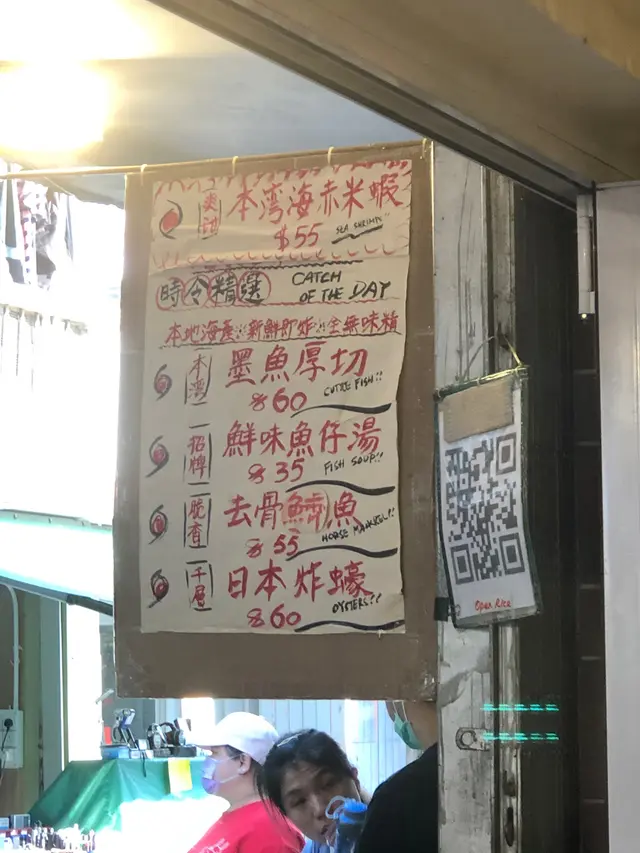 爽甜 本湾海赤米蝦
$55 SEA SHRIMPS!!
時令精選 CATCH OF THE DAY
本地海產!! 新鮮即炸!! 全無味精
本湾 墨魚厚切
$60 CUTTLE FISH!!
招牌 鮮味魚仔湯
$35 FISH SOUP!!
脆香 去骨魚
$55 HORSE MACKREL!!
千層 日本炸蠔
$60 OYSTERS!!
Open Rice